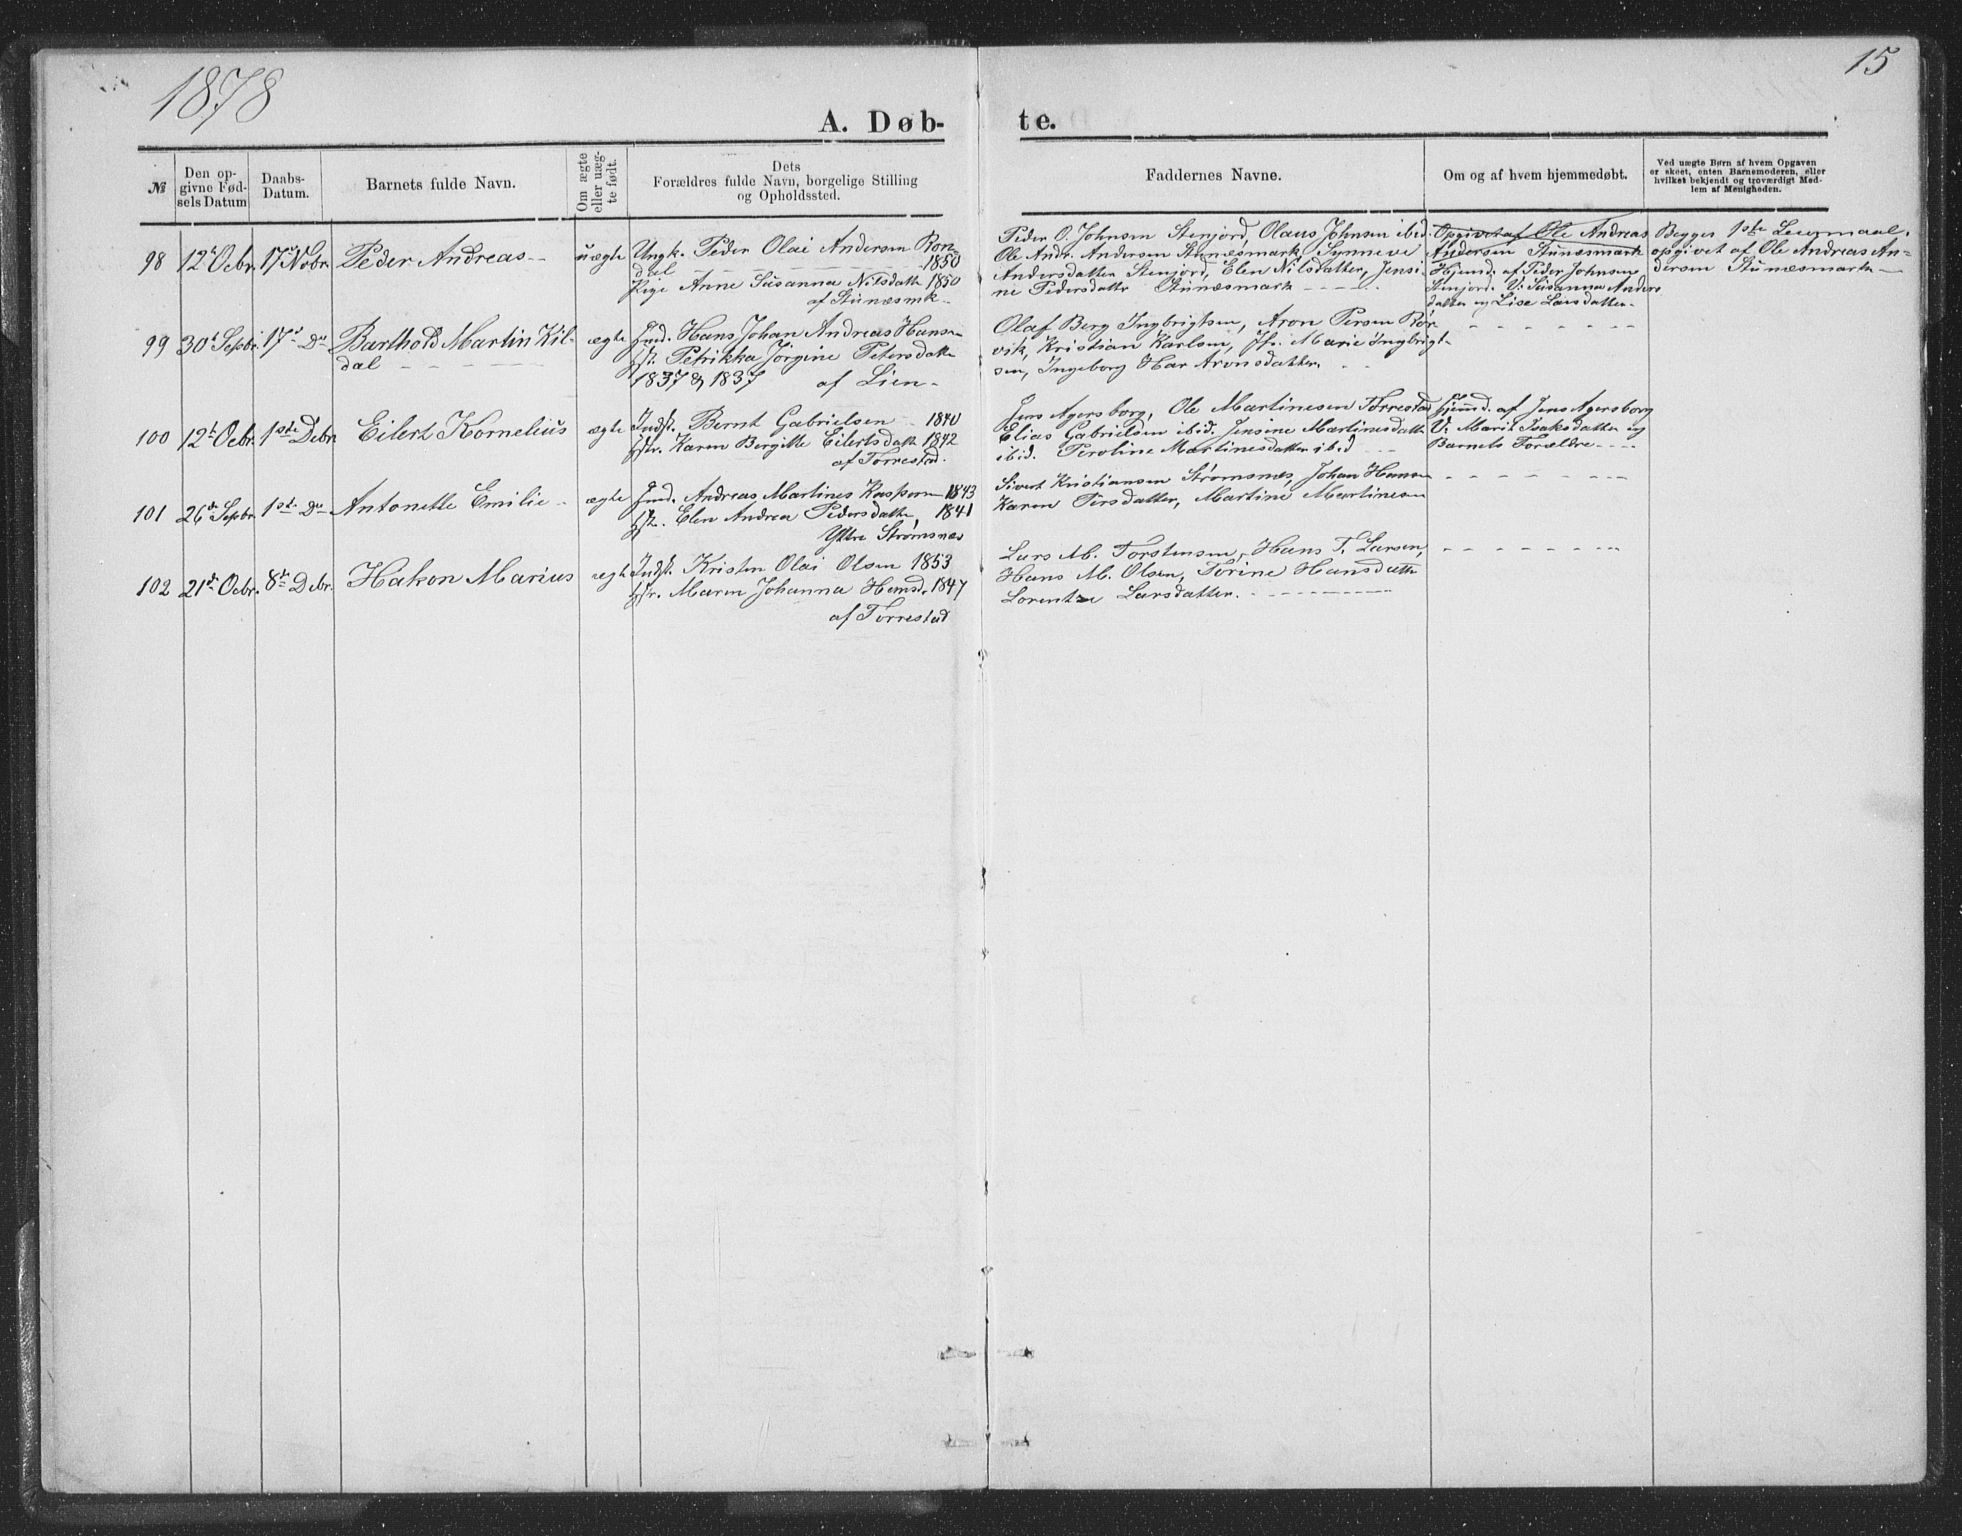 1878
15
A. Døb-
te.
№
Den op-
givne Fød-
sels Datum
Daabs-
Datum.
Barnets fulde Navn.
Om ægte
eller uæg-
te født.
Dets
Forældres fulde Navn, borgelige Stilling
og Opholdssted.
Faddernes Navne.
Om og af hvem hjemmedøbt.
Ved uægte Børn af hvem Opgaven
er skeet, enten Barnemoderen, eller
hvilket bekjendt og troværdigt Med-
lem af Menigheden.
98
12te Ocbr.
17de Nobr.
Peder Andreas
uægte
Ungk. Peder Olai Andersen Ron-
dal 1850
Pige Anne Susanna Nilsdatt 1850
af Stunæsmk
Peder O. Johnsen Stenjord, Olaus Johnsen ibid.
Ole Andr. Andersen Stunæsmark, Synneve
Andersdatter Stenjord, Elen Nilsdatter, Jensi-
ne Pedersdattr Stunæsmark
Opgivet af Ole Andreas
Andersen Stunæsmark
Hjemd. af Peder Johnsen
Stenjord. V: Susanna Anders
datter og Lise Larsdatter
Begges 1ste Leiermaal,
opgivet af Ole Andreas An-
dersen Stunæsmark
99
30te Sepbr.
17de Do
Barthold Martin Kil-
dal
ægte
Hans Johan Andreas Hansen
Petrikka Jörgine Petersdatter
1837 & 1837 af Lien
Olaf Berg Ingbrigtsen, Aron Persen Rør-
vik, Kristian Karlsen, Marie Ingbrigt-
sen, Ingeborg Har Aronsdatter,
100
12te Ocbr.
1ste Debr.
Eilert Kornelius
ægte
Indst. Bernt Gabrielsen 1840
Hstr. Karen Bergitte Eilertsdatt 1842
af Torrestad.
Jens Agersborg, Ole Martinesen Torrestad
Elias Gabrielsen ibid. Jensine Martinesdatt
ibid. Peroline Martinesdatter ibid
Hjemd. af Jens Agersborg
V: Marit Isaksdatter og
Barnets Forældre
101
26de Sepbr.
1ste Do
Antonette Emilie
ægte
Andreas Martines Kaspersen 1843
Elen Andrea Pedersdatter, 1841
Yttre Strømsnæs
Sivert Kristiansen Strømsnæs, Johan Hansen
Karen Persdatter, Martine Martinesen
102
21de Ocbr.
8de Debr.
Hakon Marius
ægte
Indst. Kristen Olai Olsen 1853
Hstr. Maren Johanna Hansd. 1847
af Torrestad
Lars M. Torstensen, Hans T. Larsen,
Hans M. Olsen, Torine Hansdatter
Lorentze Larsdatter.